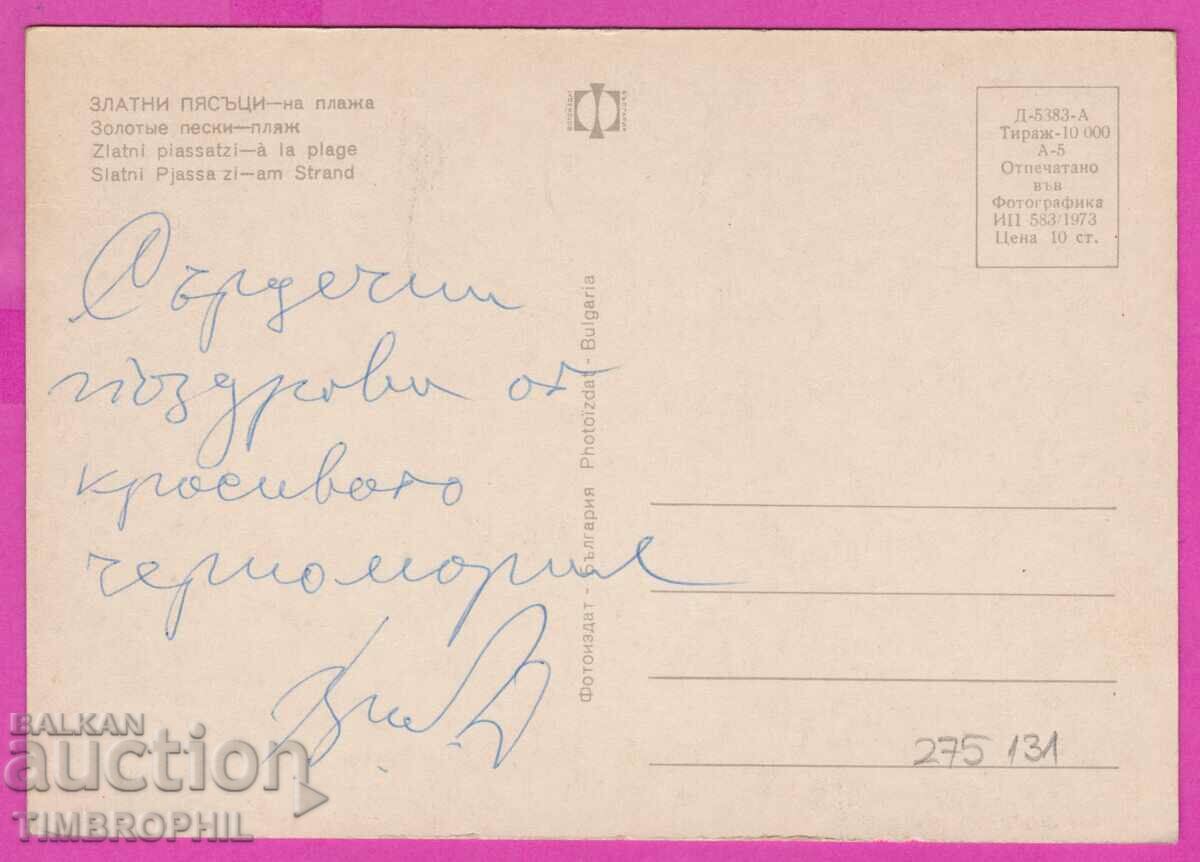 ЗЛАТНИ ПЯСЪЦИ—на плажа
Золотые пески—пляж
Zlatni piassatzi—à la plage
Slatni Pjassa zi—am Strand
ФОТОИЗДАТ
БЪЛГАРИЯ
Д-5383-А
Тираж-10 000
А-5
Отпечатано
във
Фотографика
ИП 583/1973
Цена 10 ст.
Сърдечни
поздрави от
красивото
черноморие
Фотоиздат - България Photoïzdat - Bulgaria
275 131
BALKAN
auction
TIMBROPHIL